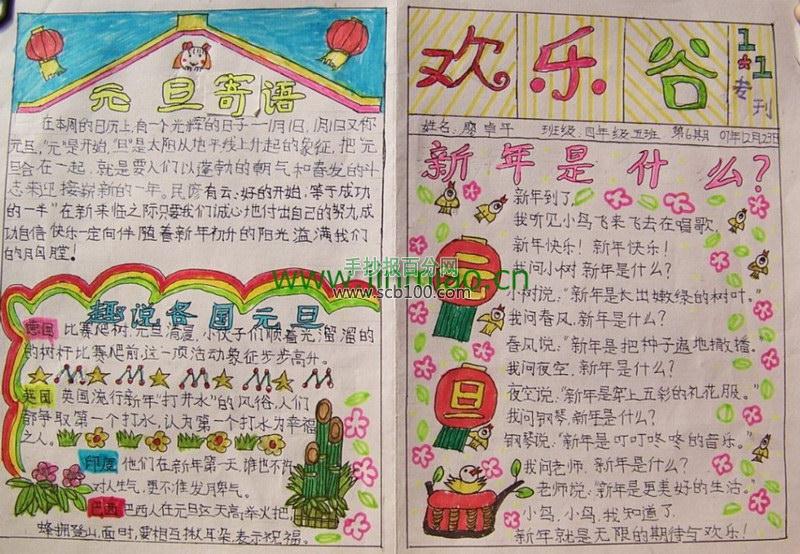 元旦寄语
在本周的日历上,有一个光辉的日子—1月1日,1月1日又称
元旦,"元"是开始,"旦"是太阳从地平线上升起的象征,把"元
旦合在一起,就是要人们以蓬勃的朝气和奋发的斗
志来迎接崭新的一年。民谚有云:好的开始,等于成功
的一半"在新来临之际只要我们诚心地付出自己的努力,成
功自信快乐一定向伴随着新年初升的阳光溢满我们
的胸膛!
趣说各国元旦
德国 比赛爬树,元旦清晨,小伙子们顺着光溜溜的
的树杆比赛爬前,这一项活动象征步步高升。
英国 英国流行新年"打井水"的风俗,人们
都争取第一个打水,认为第一个打水为幸福
之人。
印度 他们在新年第一天,谁也不许
对人生气,更不准发脾气。
巴西 巴西人在元旦这天高举火把,
蜂拥登山,面时,要相互揪耳朵,表示祝福。
欢乐谷
1·1
专刊
姓名:廖卓平 班级:四年级五班 第6期 07年12月23日
新年是什么?
新年到了,
我听见小鸟飞来飞去在唱歌,
新年快乐!新年快乐!
我问小树,新年是什么?
小树说:"新年是长出嫩绿的树叶。"
我问春风,新年是什么?
春风说:"新年是把种子遍地撒播。"
我问夜空,新年是什么?
夜空说:"新年是穿上五彩的礼花服。"
我问钢琴,新年是什么?
钢琴说:"新年是叮叮咚咚的音乐。"
我问老师,新年是什么?
老师说:"新年是更美好的生活。"
小鸟,小鸟,我知道了,
新年就是无限的期待与欢乐!
元
旦
手抄报百分网
www.scb100.com